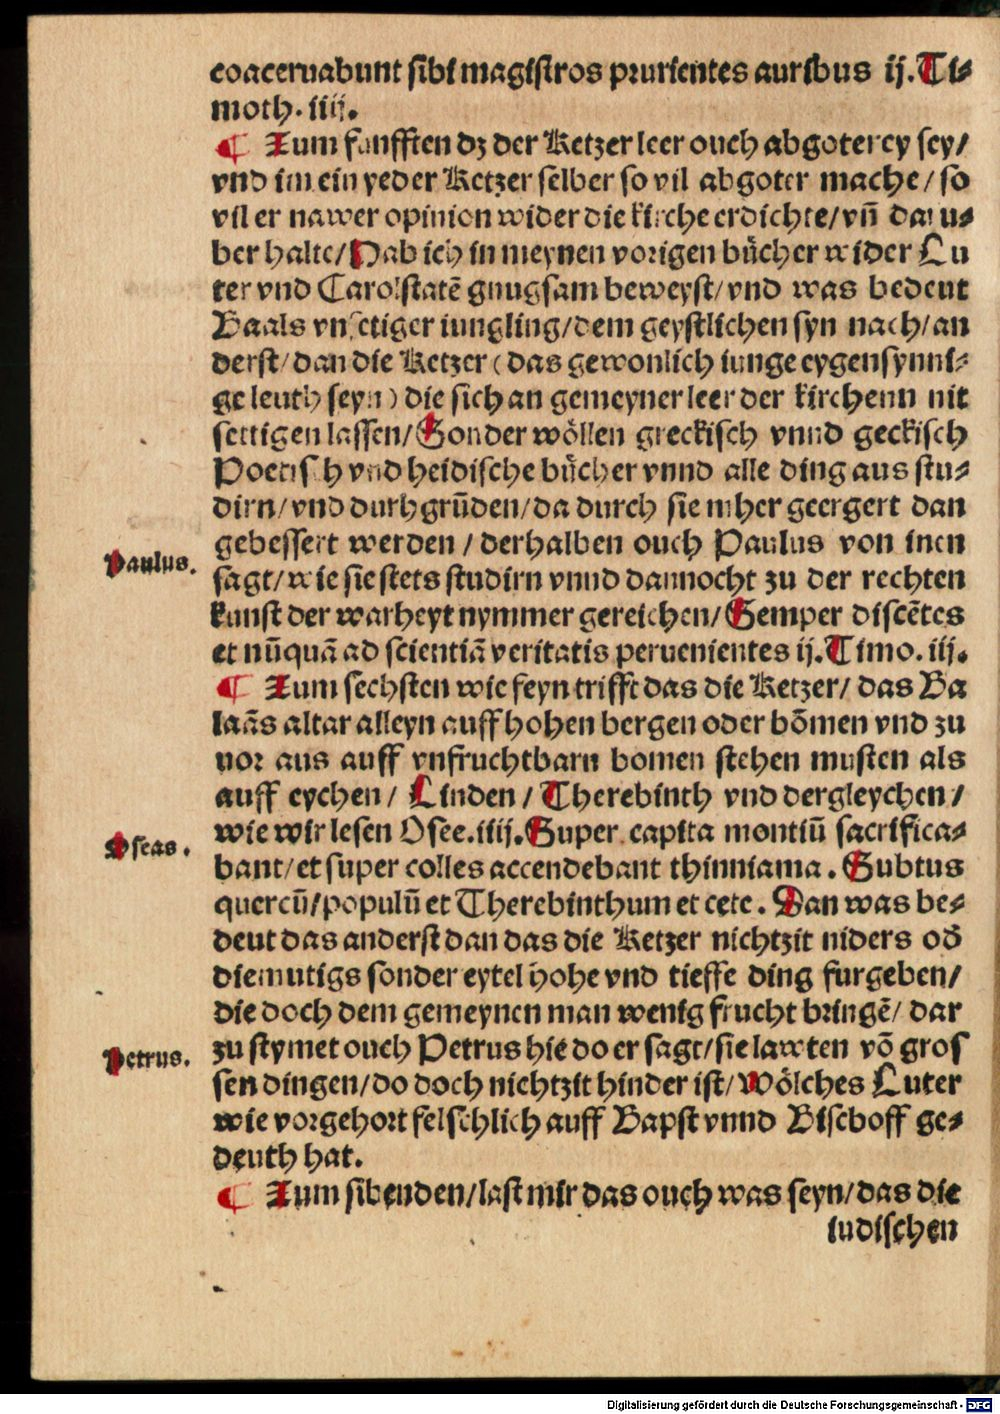 coaceruabunt sibi magistros prurientes auribus ij. Ti⸗
moth. iiij.
¶ Zum funfften dz der Ketzer leer ouch abgoterey sey/
vnd im ein yeder Ketzer selber so vil abgoter mache/ so
vil er nawer opinion wider die kirche erdichte/ vn̄ daru⸗
ber halte/ Hab ich in meynen vorigen bůcher wider Lu
ter vnd Carolstatē gnugsam beweyst/ vnd was bedeut
Baals vnsetiger iungling/ dem geystlichen syn nach/ an
derst/ dan die Ketzer (das gewonlich iunge eygensynni⸗
ge leuth seyn) die sich an gemeyner leer der kirchenn nit
settigen lassen/ Sonder wöllen greckisch vnnd geckisch
Poetisch vnd heidische bůcher vnnd alle ding aus stu⸗
dirn/ vnd durhgrūden/ da durch sie mher geergert dan
gebessert werden/ derhalben ouch Paulus von inen
Paulus.
sagt/ wie sie stets studirn vnnd dannocht zu der rechten
kunst der warheyt nymmer gereichen/ Semper discētes
et nūquā ad scientiā veritatis peruenientes ij. Timo. iij.
¶ Zum sechsten wie feyn trifft das die Ketzer/ das Ba
laās altar alleyn auff hohen bergen oder bömen vnd zu
uor aus auff vnfruchtbarn bomen stehen musten als
auff eychen/ Linden/ Therebinth vnd dergleychen/
wie wir lesen Osee. iiij. Super capita montiū sacrifica⸗
Oseas.
bant/ et super colles accendebant thimiama. Subtus
quercū/ populū et Therebinthum et cete. Dan was be⸗
deut das anderst dan das die Ketzer nichtzit niders od̄
diemutigs sonder eytel hohe vnd tieffe ding furgeben/
die doch dem gemeynen man wenig frucht bringē/ dar
zu stymet ouch Petrus hie do er sagt/ sie lawten vō gros
Petrus.
sen dingen/ do doch nichtzit hinder ist/ Wölches Luter
wie vorgehort felschlich auff Bapst vnnd Bischoff ge⸗
deuth hat.
¶ Zum sibenden/ last mir das ouch was seyn/ das die
iudischen
Digitalisierung gefördert durch die Deutsche Forschungsgemeinschaft - DFG